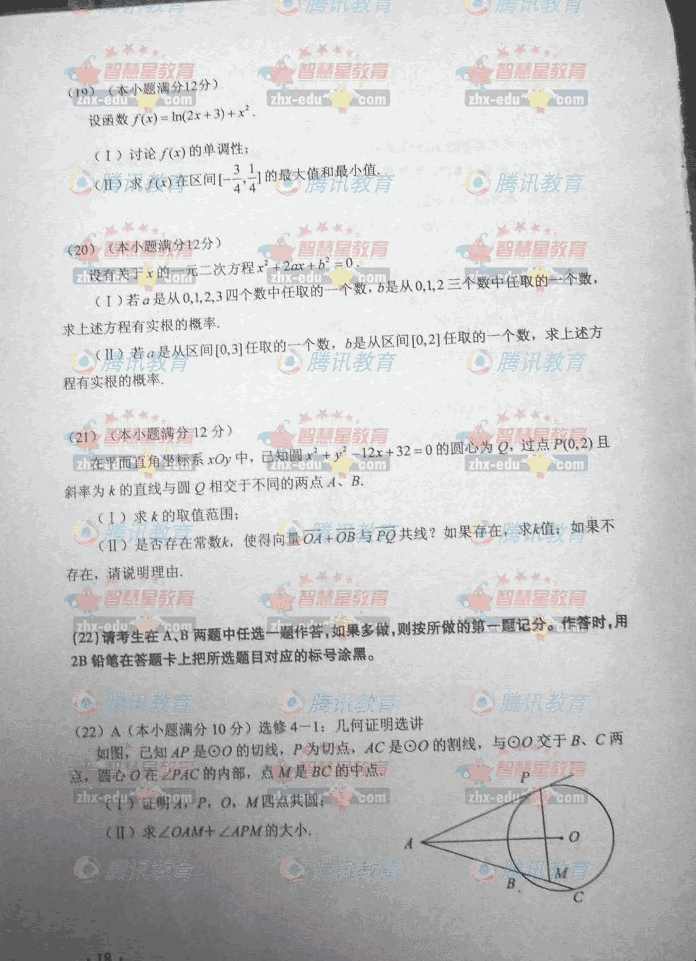 (19) (本小题满分12分)
设函数 f(x) = ln(2x+3) + x².
(Ⅰ) 讨论 f(x) 的单调性;
(Ⅱ) 求 f(x) 在区间 [-3/4, 1/4] 的最大值和最小值.
(20) (本小题满分12分)
设有关于 x 的一元二次方程 x² + 2ax + b² = 0.
(Ⅰ) 若 a 是从 0,1,2,3 四个数中任取的一个数, b 是从 0,1,2 三个数中任取的一个数,
求上述方程有实根的概率.
(Ⅱ) 若 a 是从区间 [0,3] 任取的一个数, b 是从区间 [0,2] 任取的一个数, 求上述方
程有实根的概率.
(21) (本小题满分 12 分)
在平面直角坐标系 xOy 中, 已知圆 x² + y² - 12x + 32 = 0 的圆心为 Q, 过点 P(0,2) 且
斜率为 k 的直线与圆 Q 相交于不同的两点 A、B.
(Ⅰ) 求 k 的取值范围;
(Ⅱ) 是否存在常数k, 使得向量 OA + OB 与 PQ 共线? 如果存在, 求k值; 如果不
存在, 请说明理由.
(22)请考生在 A、B 两题中任选一题作答,如果多做,则按所做的第一题记分。作答时,用
2B 铅笔在答题卡上把所选题目对应的标号涂黑。
(22) A (本小题满分 10 分) 选修 4-1: 几何证明选讲
如图, 已知 AP 是⊙O 的切线, P 为切点, AC 是⊙O 的割线, 与⊙O 交于 B、C 两
点, 圆心 O 在∠PAC 的内部, 点 M 是 BC 的中点.
(Ⅰ) 证明 A, P, O, M 四点共圆;
(Ⅱ) 求∠OAM+∠APM 的大小.
P
A
O
M
B
C
· 18 ·
腾讯教育
智慧星教育
zhx-edu com